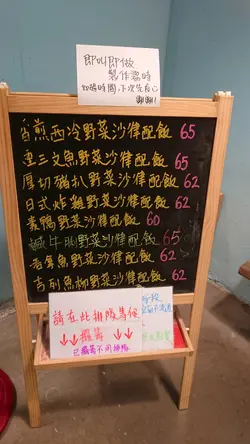 即叫即做
製作需時
如趕時間,下次先食心
謝謝!
香煎西冷野菜沙律配飯 65
三文魚野菜沙律配飯 65
厚切豬扒野菜沙律配飯 62
日式炸雞野菜沙律配飯 62
素鴨野菜沙律配飯 60
鹹牛脷野菜沙律配飯 65
香葱魚野菜沙律配飯 62
吉列魚柳野菜沙律配飯 62
請在此排隊等候
↓↓攞籌↓↓
已攞籌不用排隊